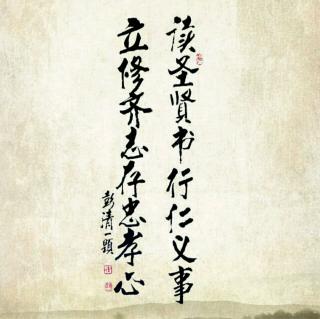 读圣贤书行仁义事
立修齐志存忠孝心
彭清一题